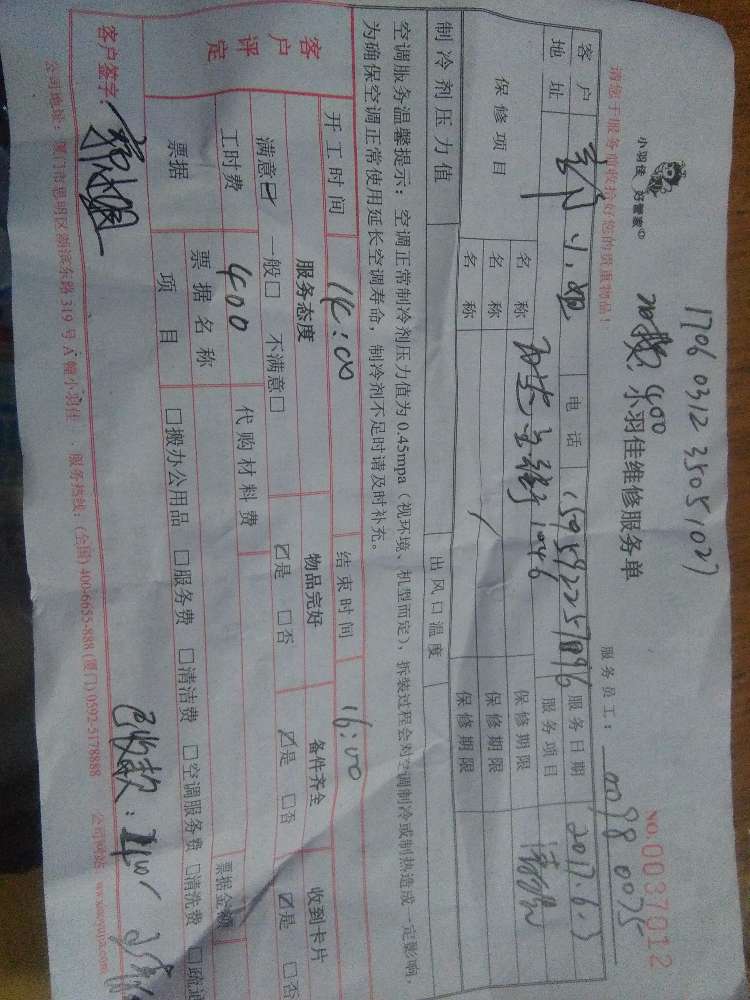 1706 0312 3505 1027
小羽佳 好管家®
400
小羽佳维修服务单
NO.0037012
请您于服务前收拾好您的贵重物品!
服务员工: 0098 0075
客户 小姐 电话 服务日期 2017.6.3
地址 服务项目
保修项目 名称 保修期限
名称 保修期限
名称 保修期限
制冷剂压力值 出风口温度
空调服务温馨提示:空调正常制冷剂压力值为0.45mpa(视环境、机型而定),拆装过程会对空调制冷或制热造成一定影响,
为确保空调正常使用延长空调寿命,制冷剂不足时请及时补充。
开工时间 14:00 结束时间 16:00
客户评定 服务态度 物品完好 备件齐全 收到卡片
满意☑ 一般□ 不满意□ ☑是 □否 ☑是 □否 ☑是 □否
工时费 400 代购材料费
票据 票据名称 票据金额
项目 □搬办公用品 □服务费 □清洁费 □空调服务费 □清洗费 □疏通
客户签字: 已收款:
公司地址:厦门市思明区湖滨东路319号A幢小羽佳 服务热线:(全国)400-6655-888(厦门)0592-5178888 公司网站